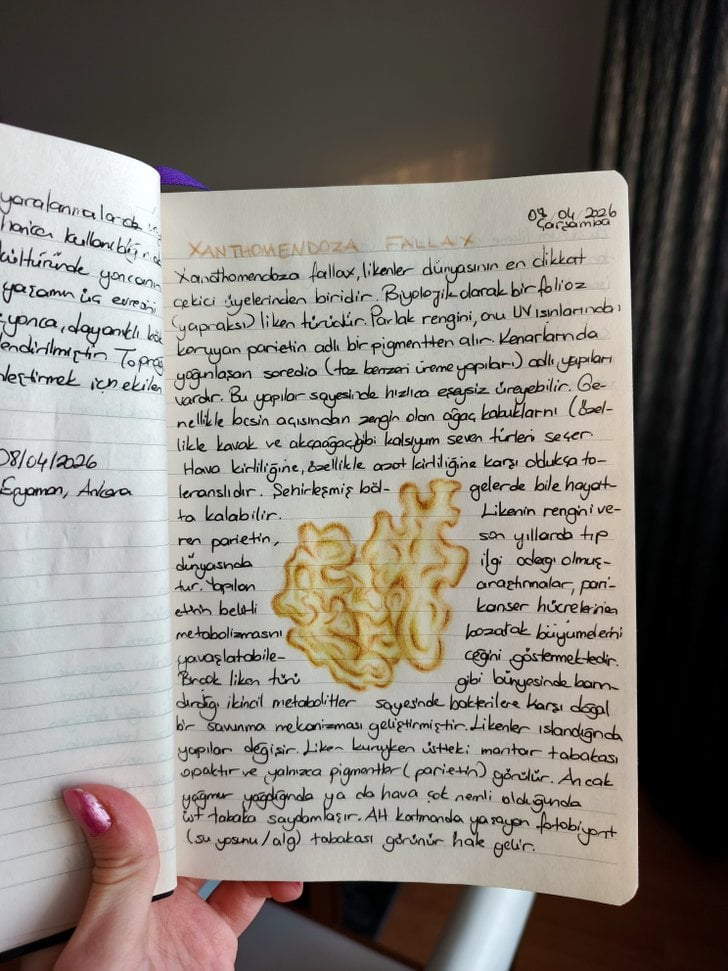 yaralanmalarda
harici kullanıldığı
kültüründe yoncanın
yaşamın üç evresini
yonca, dayanıklı kök
lendirilmiştir. Topra
leştirmek için ekilen
08/04/2026
Eryaman, Ankara
08/04/2026
Çarşamba
XANTHOMENDOZA FALLAX
Xanthomendoza fallax, likenler dünyasının en dikkat
çekici üyelerinden biridir. Biyolojik olarak bir folioz
(yapraksı) liken türüdür. Parlak rengini, onu UV ışınlarından
koruyan parietin adlı bir pigmentten alır. Kenarlarında
yoğunlaşan soredia (toz benzeri üreme yapıları) adlı yapıları
vardır. Bu yapılar sayesinde hızlıca eşeysiz üreyebilir. Ge-
nellikle besin açısından zengin olan ağaç kabuklarını (özel-
likle kavak ve akçaağaç)gibi kalsiyum seven türleri seçer.
Hava kirliliğine, özellikle azot kirliliğine karşı oldukça to-
leranslıdır. Şehirleşmiş böl- gelerde bile hayat-
ta kalabilir. Likenin rengini ve-
ren parietin, son yıllarda tıp
dünyasında ilgi odağı olmuş-
tur. Yapılan araştırmalar, pari-
etin belirli kanser hücrelerinin
metabolizmasını bozarak büyümelerini
yavaşlatabile- ceğini göstermektedir.
Birçok liken türü gibi bünyesinde barın-
dırdığı ikincil metabolitler sayesinde bakterilere karşı doğal
bir savunma mekanizması geliştirmiştir. Likenler ıslandığında
yapıları değişir. Liken kuruyken üstteki mantar tabakası
opaktır ve yalnızca pigmentler (parietin) görülür. Ancak
yağmur yağdığında ya da hava çok nemli olduğunda
üst tabaka saydamlaşır. Alt katmanda yaşayan fotobiyont
(su yosunu/alg) tabakası görünür hale gelir.